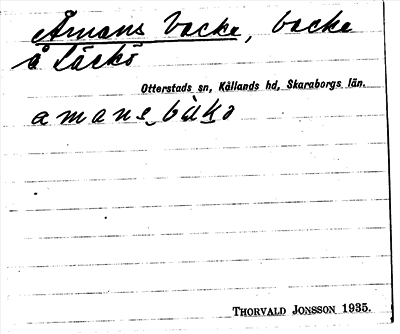 Åmans backe, backe
å Läckö
Otterstads sn, Kållands hd, Skaraborgs län.
amans bàkə
THORVALD JONSSON 1935.